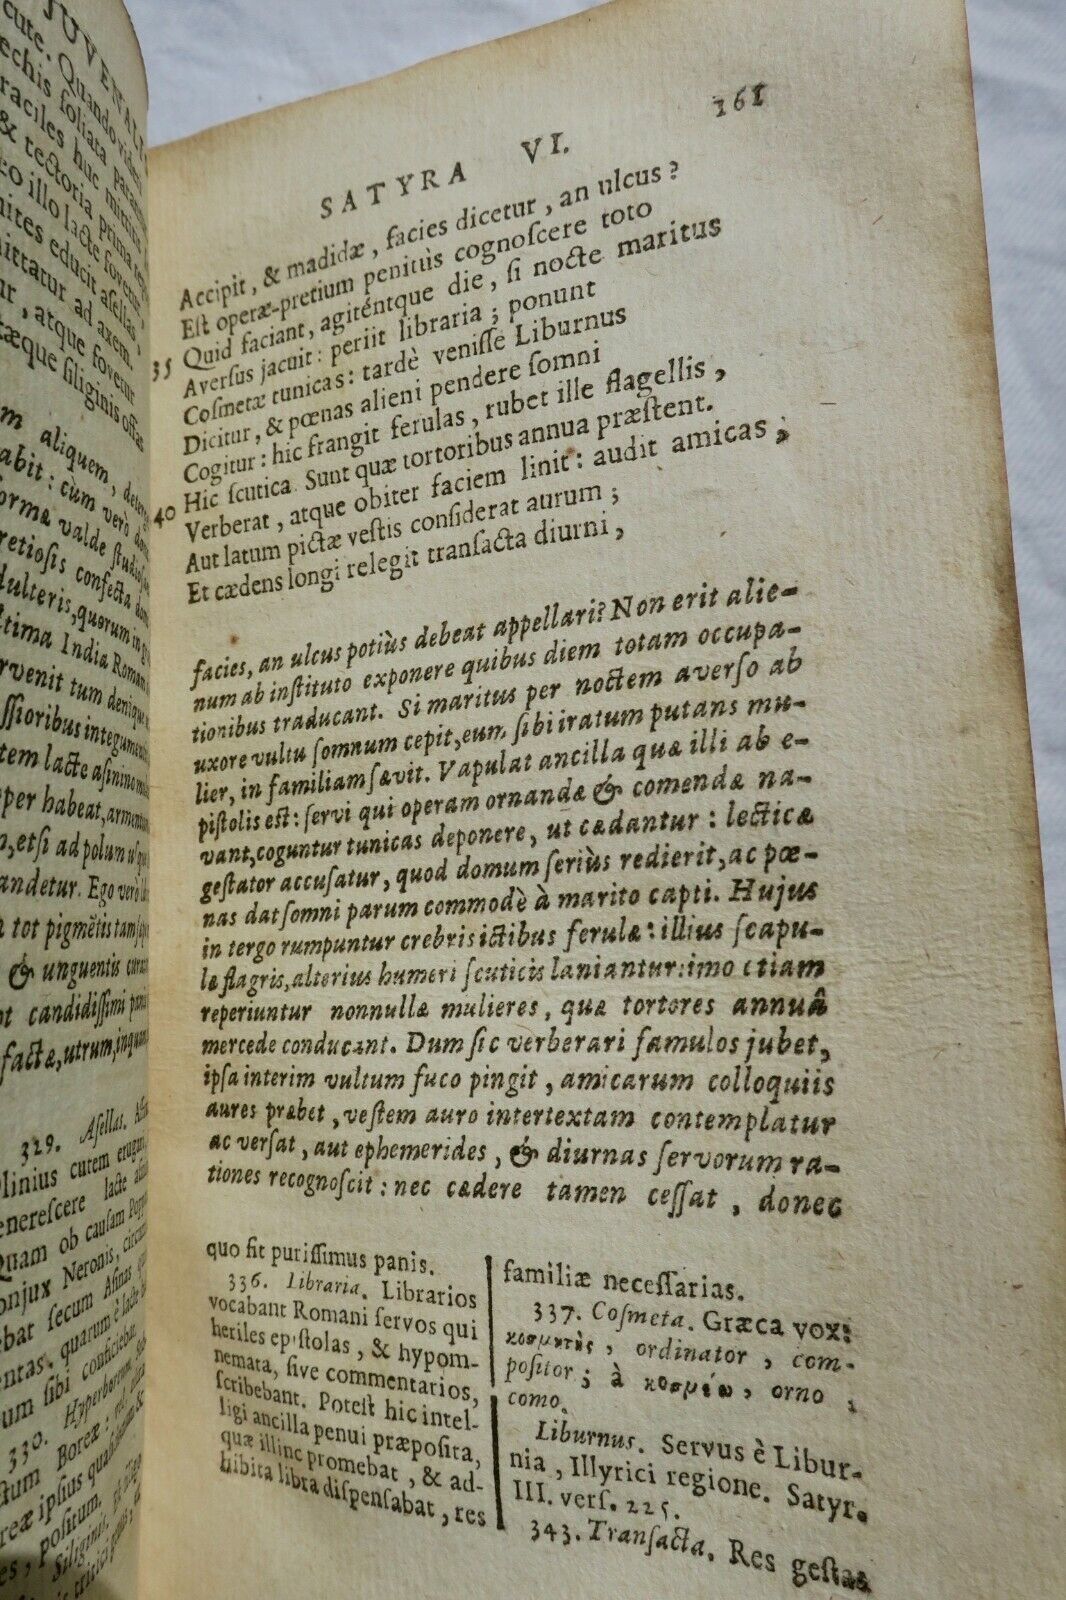 JUVENALI
cute. Quando videri
echis foliata parantur
raciles huc mittitis
& tectoria prima
illo lacte fovetur,
educit asellas,
ittatur ad axem.
ur, atque fovetur
tæque siliginis offas
m aliquem,
abit: cùm verò
formæ valde studiosa
retiosis confecta
dulteris, quorum in
tima India
rvenit tum denique
ssioribus integumenti
tem lacte asinino
per habeat, armentum
n, etsi ad polum us
andetur. Ego verò
n tot pigmētis tam
& unguentis
nt candidissimi panis
factæ, utrum, inquam
329. Asellas.
linius cutem
enerescere lacte
Quam ob causam Popp
onjux Neronis,
ebat secum Asinas
entas. quarum è lacte
um sibi conficiebat.
330. Hyperboreum
stum Boreæ:
reæ ipsius
es, positum.
Siliginis.
tritici
161
SATYRA VI.
Accipit, & madidæ, facies dicetur, an ulcus?
Est operæ-pretium penitùs cognoſcere toto
Quid faciant, agiténtque die, ſi nocte maritus
35 Averſus jacuit: periit libraria; ponunt
Coſmetæ tunicas: tardè veniſſe Liburnus
Dicitur, & pœnas alieni pendere ſomni
Cogitur: hic frangit ferulas, rubet ille flagellis,
Hic ſcutica. Sunt quæ tortoribus annua præſtent.
40 Verberat, atque obiter faciem linit: audit amicas,
Aut latum pictæ veſtis conſiderat aurum;
Et cædens longi relegit tranſacta diurni,
facies, an ulcus potiùs debeat appellari? Non erit alie-
num ab inſtituto exponere quibus diem totam occupa-
tionibus traducant. Si maritus per noctem averſo ab
uxore vultu ſomnum cepit, eum ſibi iratum putans mu-
lier, in familiam ſævit. Vapulat ancilla quæ illi ab e-
piſtolis eſt: ſervi qui operam ornandæ & comendæ na-
vant, coguntur tunicas deponere, ut cædantur: lecticæ
geſtator accuſatur, quod domum ſeriùs redierit, ac pœ-
nas dat ſomni parum commodè à marito capti. Hujus
in tergo rumpuntur crebris ictibus ferulæ: illius ſcapu-
læ flagris, alterius humeri ſcuticis laniantur: imo etiam
reperiuntur nonnullæ mulieres, quæ tortores annuâ
mercede conducant. Dum ſic verberari famulos jubet,
ipſa interim vultum fuco pingit, amicarum colloquiis
aures præbet, veſtem auro intertextam contemplatur
ac verſat, aut ephemerides, & diurnas ſervorum ra-
tiones recognoſcit: nec cædere tamen ceſſat, donec
quo fit puriſſimus panis.
336. Libraria. Librarios
vocabant Romani ſervos qui
heriles epiſtolas, & hypom-
nemata, ſive commentarios,
ſcribebant. Poteſt hic intel-
ligi ancilla penui præpoſita,
quæ illinc promebat, & ad-
hibita libra diſpenſabat, res
familiæ neceſſarias.
337. Coſmetæ. Græca vox:
κοσμητὴς, ordinator, com-
poſitor; à κοσμέω, orno,
como.
Liburnus. Servus è Libur-
nia, Illyrici regione. Satyr.
III. verſ. 225.
343. Tranſacta. Res geſtas